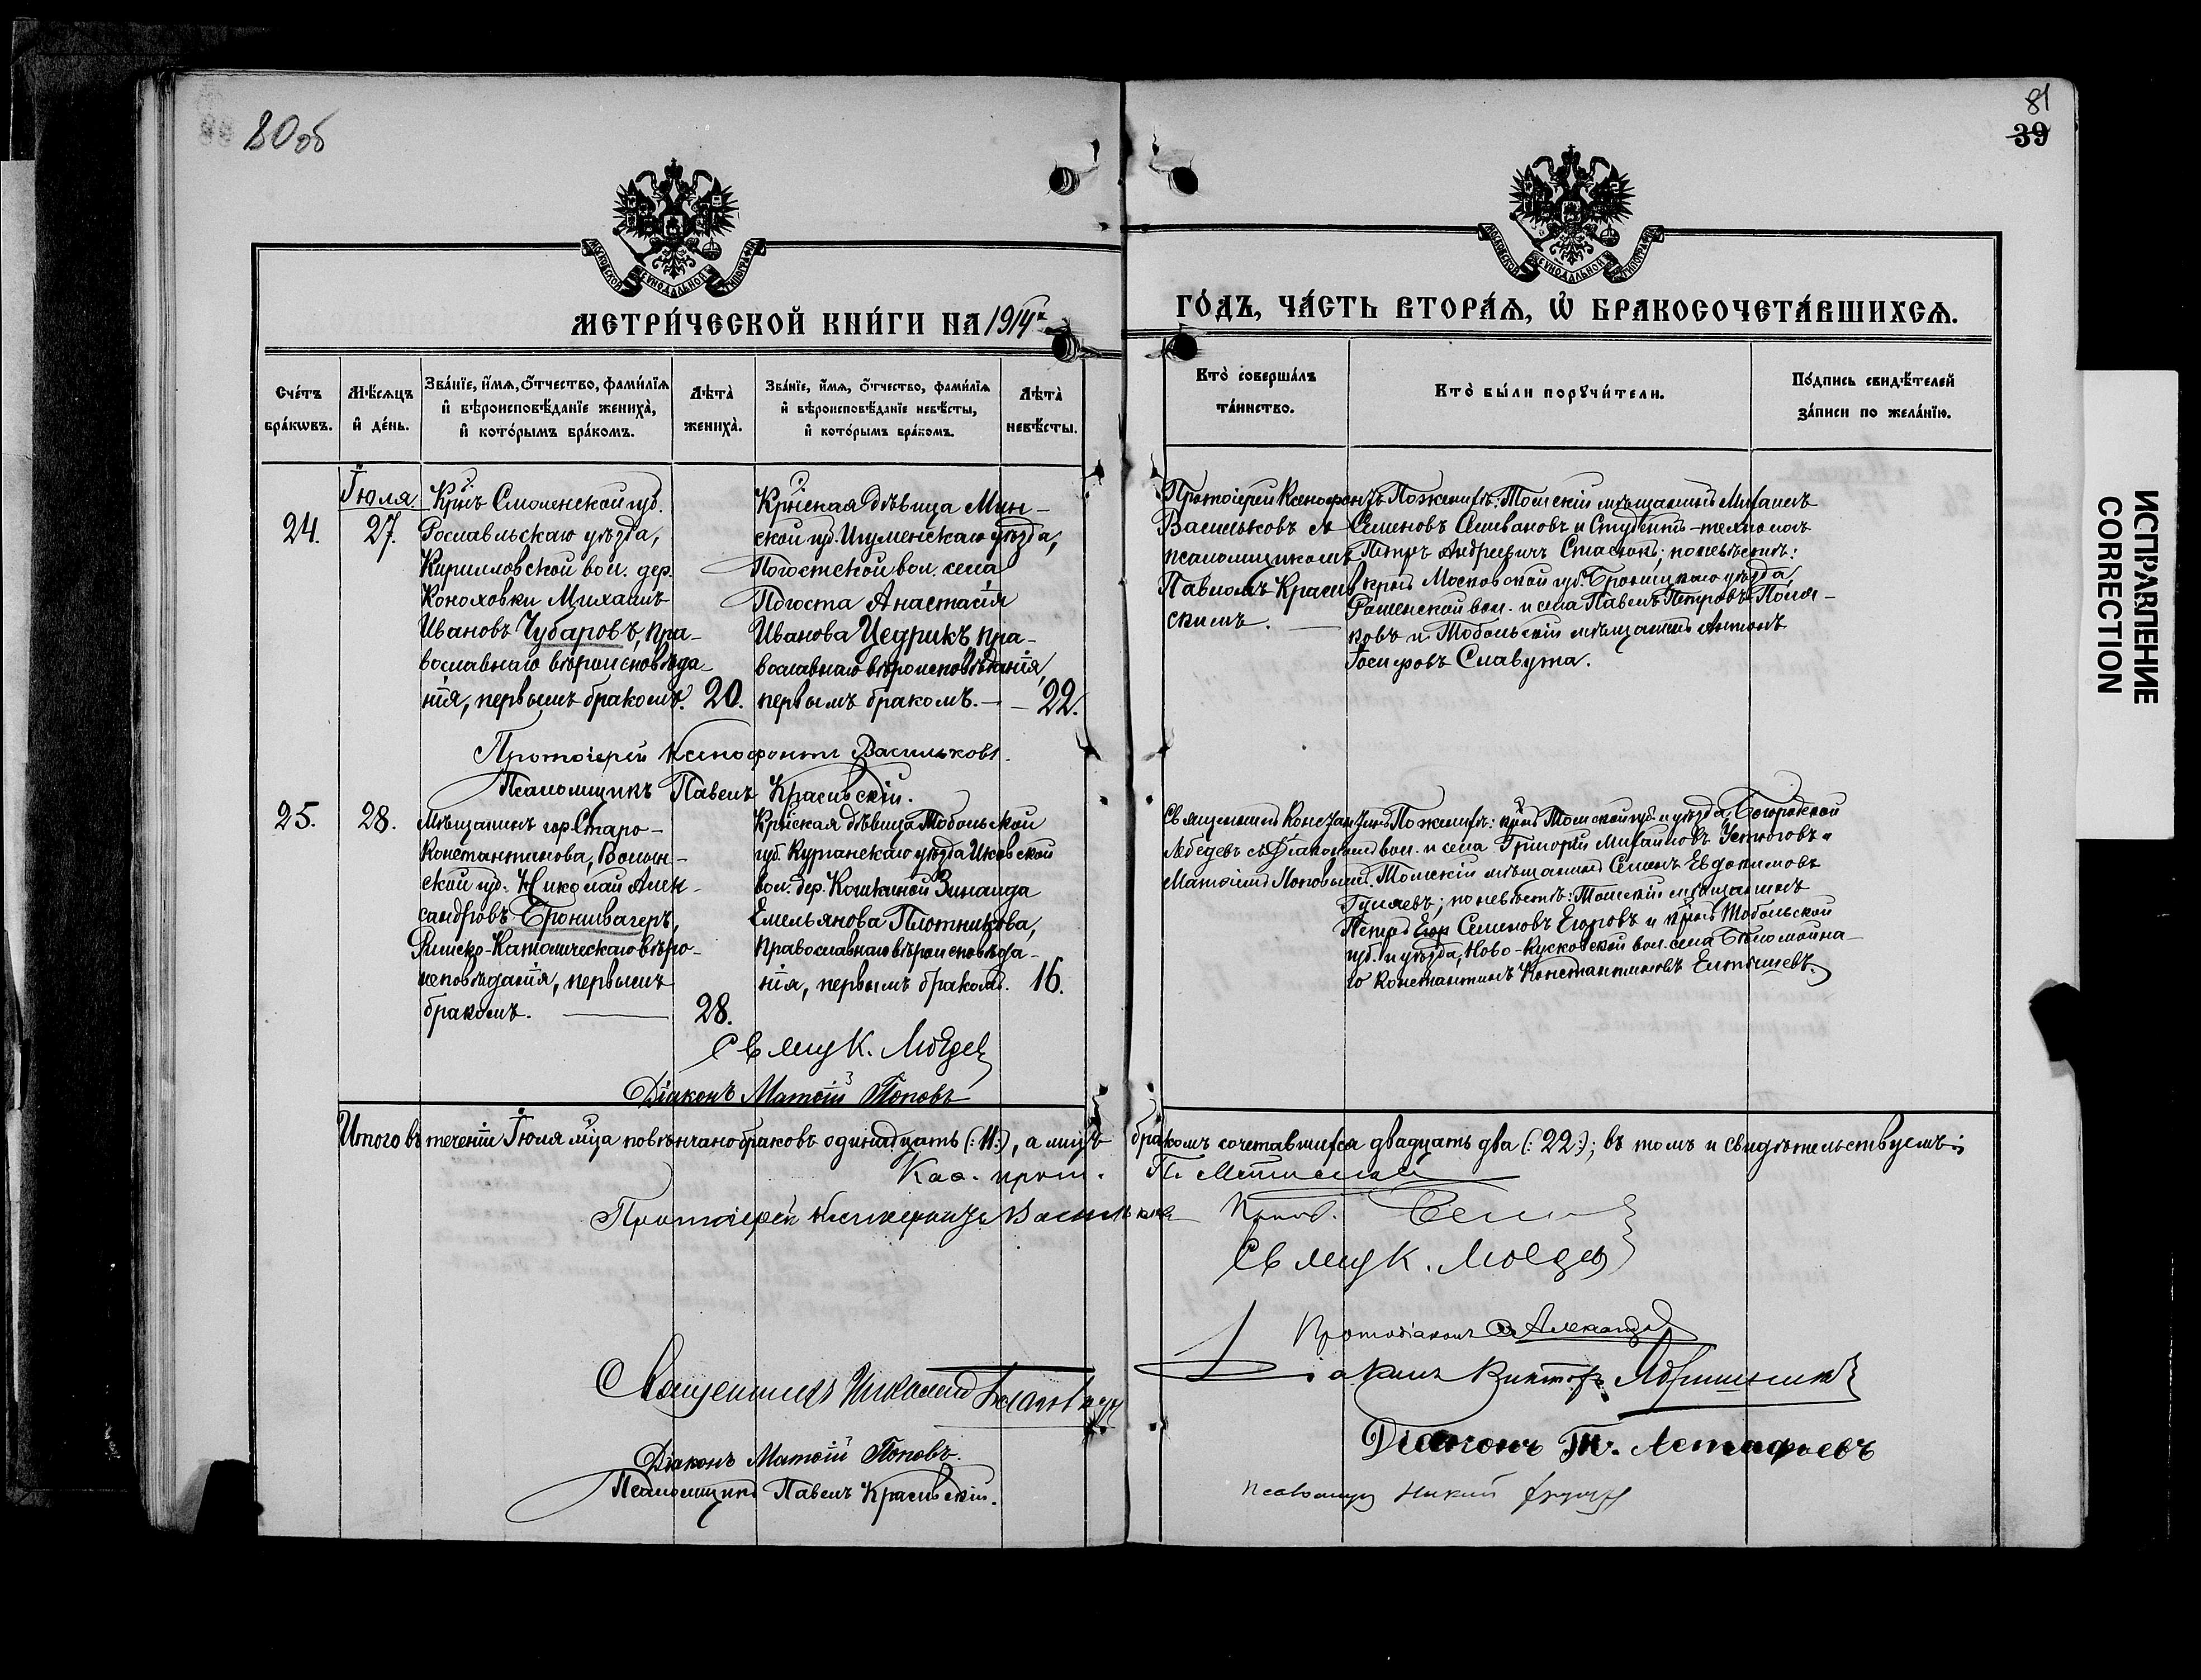 80 об
81
39
МОСКОВСКОЙ СѴНОДАЛЬНОЙ ТИПОГРАФІИ
МОСКОВСКОЙ СѴНОДАЛЬНОЙ ТИПОГРАФІИ
МЕТРИ́ЧЕСКОЙ КНИ́ГИ НА 1914й
ГО́ДЪ, ЧА́СТЬ ВТОРА́Ѧ, Ѽ БРАКОСОЧЕТА́ВШИХСѦ.
Сче́тъ бра́кѡвъ.
Мѣ́сѧцъ и҆ де́нь.
Зва́нїе, и҆́мѧ, ѻ҆́тчество, фами́лїѧ и҆ вѣроисповѣ́данїе жениха̀, и҆ кото́рымъ бра́комъ.
Лѣта̀ жениха̀.
Зва́нїе, и҆́мѧ, ѻ҆́тчество, фами́лїѧ и҆ вѣроисповѣ́данїе невѣ́сты, и҆ кото́рымъ бра́комъ.
Лѣта̀ невѣ́сты.
Кто̀ соверша́лъ та́инство.
Кто̀ бы́ли порꙋчи́тели.
По́дпись свидѣ́телей за́писи по жела́нїю.
Іюля
24.
27.
Кр-нъ Смоленской губ.
Рославльскаго уѣзда,
Кирилловской вол. дер.
Коноховки Михаилъ
Ивановъ Чубаровъ, пра-
вославнаго вѣроисповѣда-
нія, первымъ бракомъ.
20.
Кр-нская дѣвица Мин-
ской губ. Игуменскаго уѣзда,
Погостской вол. села
Погоста Анастасія
Иванова Цедрикъ, пра-
вославнаго вѣроисповѣданія,
первымъ бракомъ.
22.
Протоіерей Ксенофонтъ
Васильковъ съ
псаломщикомъ
Павломъ Красив-
скимъ.
По женихѣ: Томскій мѣщанинъ Михаилъ
Семеновъ Селивановъ и Студентъ-технологъ
Петръ Андреевичъ Стасюкъ; по невѣстѣ:
кр-нъ Московской губ. Бронницкаго уѣзда,
Раменской вол. и села Павелъ Петровъ Поля-
ковъ и Тобольскій мѣщанинъ Антонъ
Іосифовъ Славута.
Протоіерей Ксенофонтъ Васильковъ.
Псаломщикъ Павелъ Красивскій.
25.
28.
Мѣщанинъ гор. Старо-
константинова, Волын-
ской губ. Николай Алек-
сандровъ Бронивагеръ,
Римско-Католическаго вѣро-
исповѣданія, первымъ
бракомъ.
28.
Кр-нская дѣвица Тобольской
губ. Курганскаго уѣзда Иковской
вол. дер. Кошкиной Зинаида
Емельянова Плотникова,
Православнаго вѣроисповѣда-
нія, первымъ бракомъ.
16.
Священникъ Константинъ
Лебедевъ съ Діакономъ
Матѳіемъ Поповымъ.
По женихѣ: кр-нъ Томской губ. и уѣзда, Богородской
вол. и села Григорій Михаиловъ Устюговъ и
Томскій мѣщанинъ Семенъ Евдокимовъ
Гуляевъ; по невѣстѣ: Томскій мѣщанинъ
Петръ Егор Семеновъ Егоровъ и кр-нъ Тобольской
губ. и уѣзда, Ново-Кусковской вол. села
Константинъ Константиновъ
Свящ К. Лебедев
Діаконъ Матѳій Поповъ
Итого въ теченіи Іюля м-ца повѣнчано браковъ одинадцать (:11:), а лицъ бракомъ сочетавшихся двадцать два (:22:); въ томъ и свидѣтельствуемъ:
Каѳ. прот.
Протоіерей Ксенофонтъ Васильковъ
Прот.
Свящ К. Лебедев
Протодіаконъ Александров
Священникъ Николай
Діаконъ Викторъ
Діаконъ Матѳій Поповъ.
Діаконъ Астафьевъ
Псаломщикъ Павелъ Красивскій.
Псаломщ
ИСПРАВЛЕНИЕ
CORRECTION